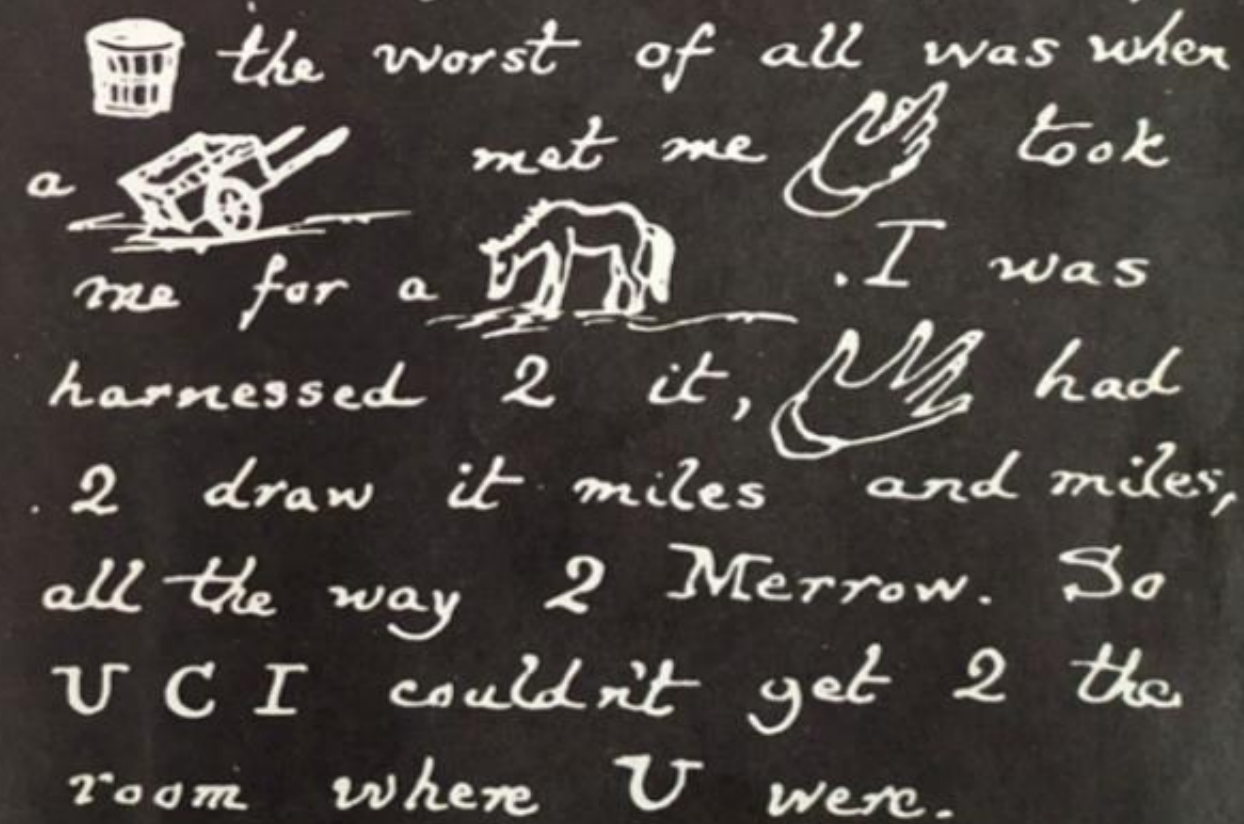 the worst of all was when
a met me took
me for a . I was
harnessed 2 it, had
. 2 draw it miles and miles,
all the way 2 Merrow. So
U C I couldn't get 2 the
room where U were.